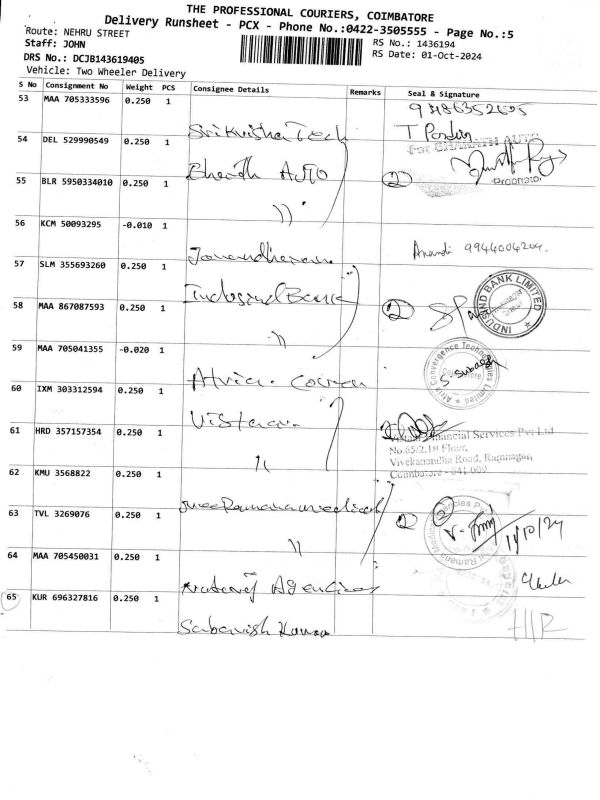 THE PROFESSIONAL COURIERS, COIMBATORE
Delivery Runsheet - PCX - Phone No.:0422-3505555 - Page No.:5
Route: NEHRU STREET
Staff: JOHN
RS No.: 1436194
DRS No.: DCJB143619405
RS Date: 01-Oct-2024
Vehicle: Two Wheeler Delivery
S No Consignment No Weight PCS Consignee Details Remarks Seal & Signature
53 MAA 705333596 0.250 1 Tech
54 DEL 529990549 0.250 1 For BHARATH AUTO
55 BLR 5950334010 0.250 1 )) 2
Proprietor
56 KCM 50093295 -0.010 1 Anandi 9944004204.
57 SLM 355693260 0.250 1 Indusind Bank
INDUSIND BANK LIMITED
58 MAA 867087593 0.250 1 )) 2
59 MAA 705041355 -0.020 1
Atrix Convergence Technologies Limited
Coimbatore
60 IXM 303312594 0.250 1 Vistaar
61 HRD 357157354 0.250 1 )) Financial Services Pvt Ltd
No.65/2,1st Floor,
Vivekanandha Road, Ramnagar,
Coimbatore - 641 009
62 KMU 3568822 0.250 1 Sree Ramana medical
63 TVL 3269076 0.250 1 )) 2
64 MAA 705450031 0.250 1 Agencies
65 KUR 696327816 0.250 1